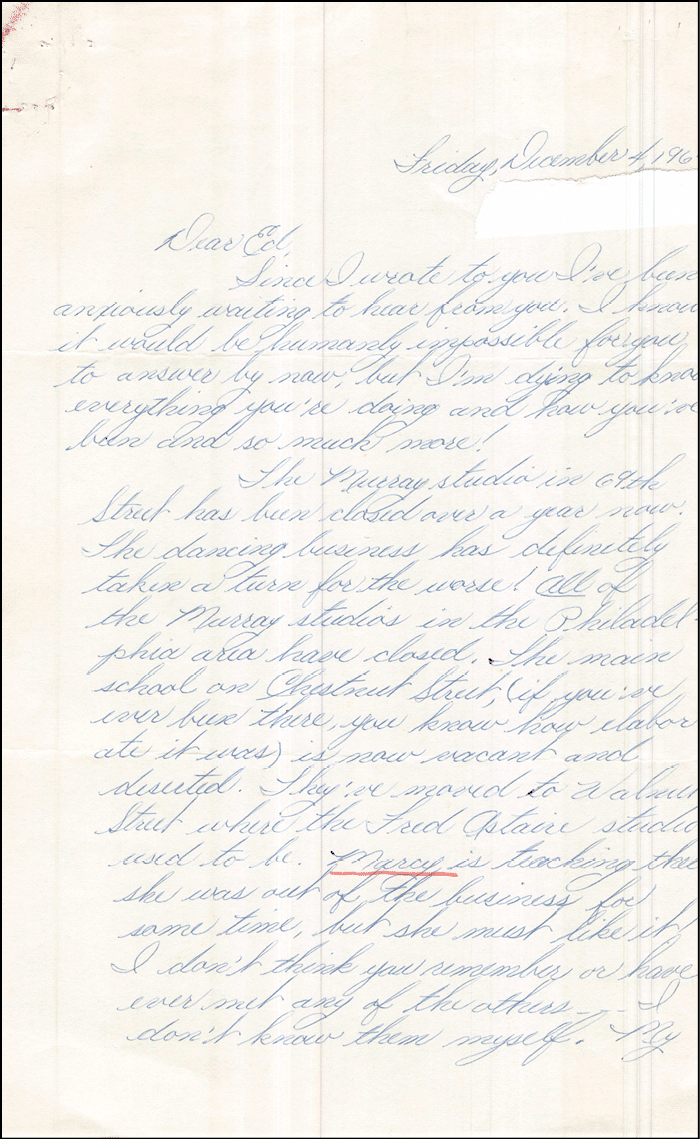 Friday, December 4, 196
Dear Ed,
Since I wrote to you I've been
anxiously waiting to hear from you. I know
it would be humanly impossible for you
to answer by now, but I'm dying to know
everything you're doing and how you've
been and so much more!
The Murray studio in 69th
Street has been closed over a year now.
The dancing business has definitely
taken a turn for the worse! All of
the Murray studios in the Philadel-
phia area have closed. The main
school on Chestnut Street, (if you've
ever been there, you know how elabor
ate it was) is now vacant and
deserted. They've moved to Walnut
Street where the Fred Astaire studio
used to be. Marcy is teaching there
she was out of the business for
some time, but she must like it.
I don't think you remember or have
ever met any of the others --- I
don't know them myself. My